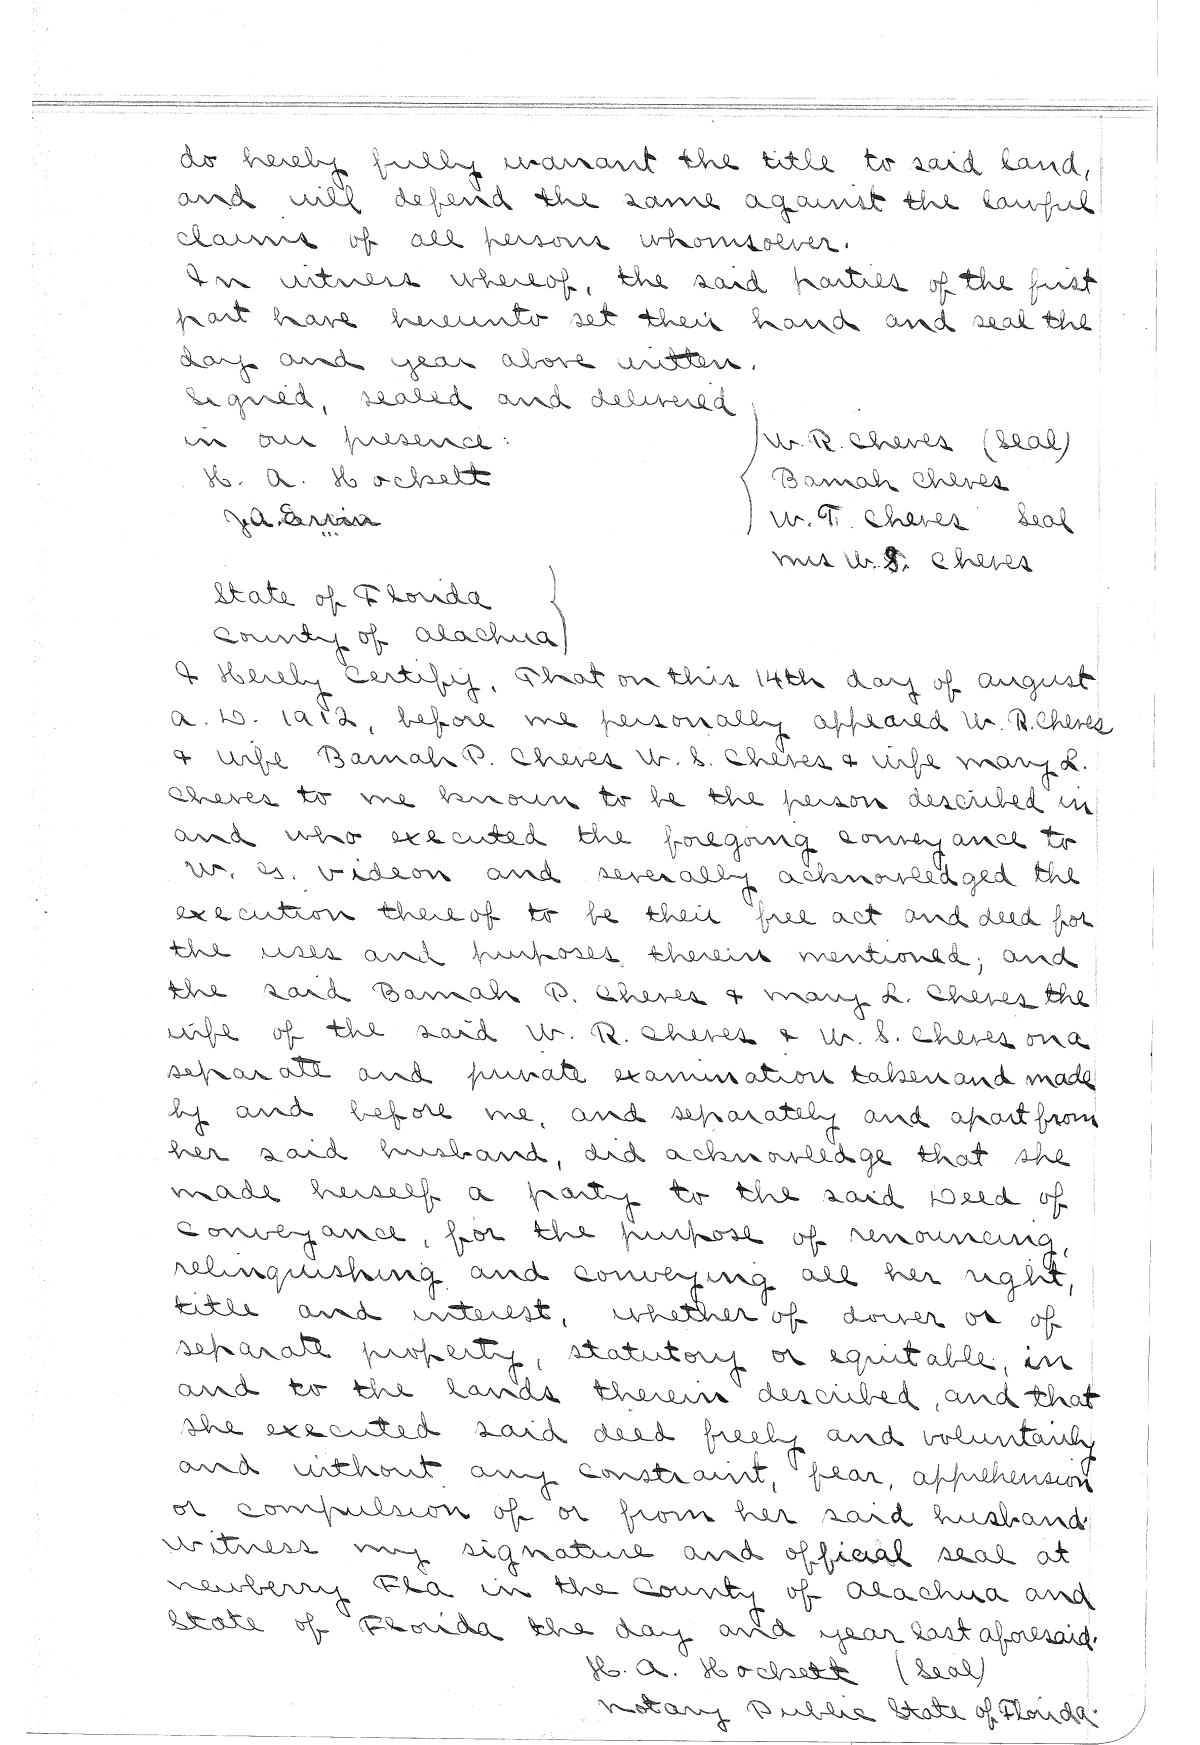 do hereby fully warrant the title to said land,
and will defend the same against the lawful
claims of all persons whomsoever.
In witness whereof, the said parties of the first
part have hereunto set their hand and seal the
day and year above written.
Signed, sealed and delivered
in our presence:
H. A. Hockett
J.A. Ervin
W. R. Cheves (Seal)
Bamah Cheves
W. T. Cheves Seal
Mrs W. S. Cheves
State of Florida
County of Alachua
I Hereby Certify, That on this 14th day of August
A. D. 1912, before me personally appeared W. R. Cheves
& wife Bamah P. Cheves W. S. Cheves & wife Mary L.
Cheves to me known to be the person described in
and who executed the foregoing conveyance to
W. G. Videon and severally acknowledged the
execution thereof to be their free act and deed for
the uses and purposes therein mentioned; and
the said Bamah P. Cheves & Mary L. Cheves the
wife of the said W. R. Cheves & W. S. Cheves on a
separate and private examination taken and made
by and before me, and separately and apart from
her said husband, did acknowledge that she
made herself a party to the said Deed of
Conveyance, for the purpose of renouncing,
relinquishing and conveying all her right,
title and interest, whether of dower or of
separate property, statutory or equitable, in
and to the lands therein described, and that
she executed said deed freely and voluntarily
and without any constraint, fear, apprehension
or compulsion of or from her said husband.
Witness my signature and official seal at
Newberry Fla in the County of Alachua and
State of Florida the day and year last aforesaid.
H. A. Hockett (Seal)
Notary Public State of Florida.